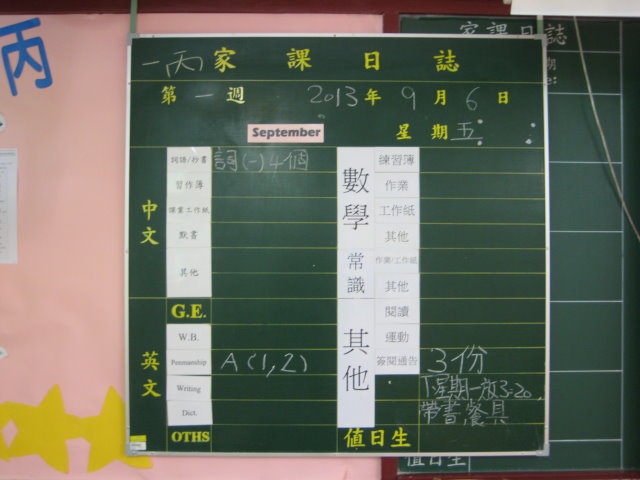 丙
一丙家課日誌
第一週 2013年9月6日
September 星期五
詞語/抄書 詞(一)4個
習作簿
課業工作紙
默書
其他
中文
G.E.
W.B.
Penmanship A(1,2)
Writing
Dict.
英文
OTHS
數學
練習簿
作業
工作紙
其他
常識
作業/工作紙
其他
其他
閱讀
運動
簽閱通告 3份
下星期一放3:20,
帶書,餐具
值日生
家課日誌
期
值日生